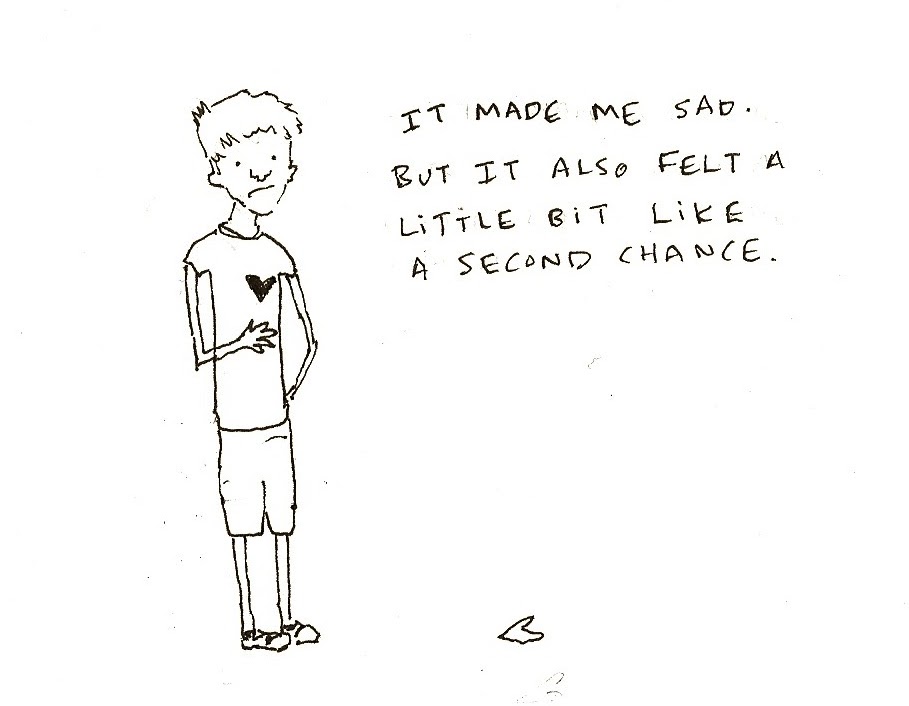 IT MADE ME SAD.
BUT IT ALSO FELT A
LiTTLE BiT LiKE
A SECOND CHANCE.